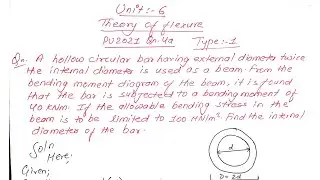 Unit:-6
Theory of flexure
PU2021 Qn.4a Type:-1
Qn. A hollow circular bar having external diameter twice
the internal diameter is used as a beam. From the
bending moment diagram of the beam, it is found
that the bar is subjected to a bending moment of
40 KNm. If the allowable bending stress in the
beam is to be limited to 100 MN/m². Find the internal
diameter of the bar.
Soln
Here;
Given;
d
D=2d